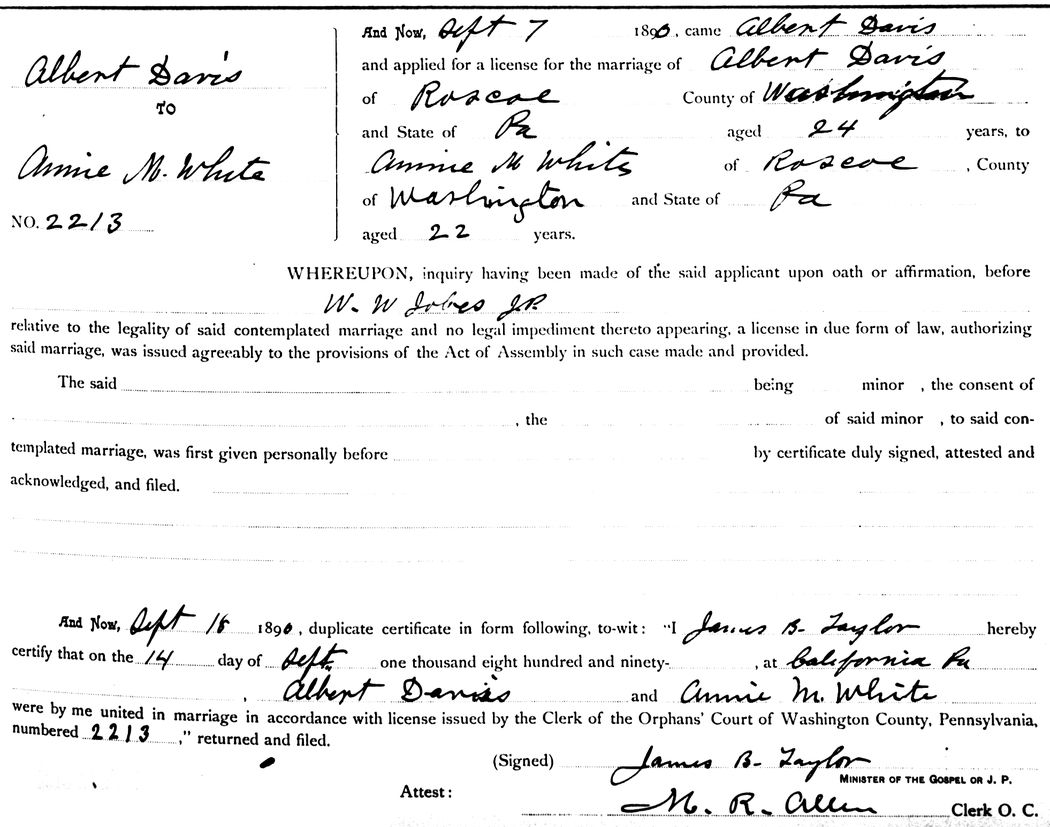 Albert Davis
TO
Annie M. White
NO. 2213
And Now, Sept 7 1890, came Albert Davis
and applied for a license for the marriage of Albert Davis
of Roscoe County of Washington
and State of Pa aged 24 years, to
Annie M White of Roscoe, County
of Washington and State of Pa
aged 22 years.
WHEREUPON, inquiry having been made of the said applicant upon oath or affirmation, before
W. W Jobes J.P.
relative to the legality of said contemplated marriage and no legal impediment thereto appearing, a license in due form of law, authorizing
said marriage, was issued agreeably to the provisions of the Act of Assembly in such case made and provided.
The said being minor , the consent of
, the of said minor , to said con-
templated marriage, was first given personally before by certificate duly signed, attested and
acknowledged, and filed.
And Now, Sept 1890, duplicate certificate in form following, to-wit: "I James B. Taylor hereby
certify that on the 14 day of Sept. one thousand eight hundred and ninety- , at California Pa
, Albert Davis and Annie M. White
were by me united in marriage in accordance with license issued by the Clerk of the Orphans' Court of Washington County, Pennsylvania,
numbered 2213 ," returned and filed.
(Signed) James B. Taylor
MINISTER OF THE GOSPEL OR J. P.
Attest: M. R. Allen Clerk O. C.